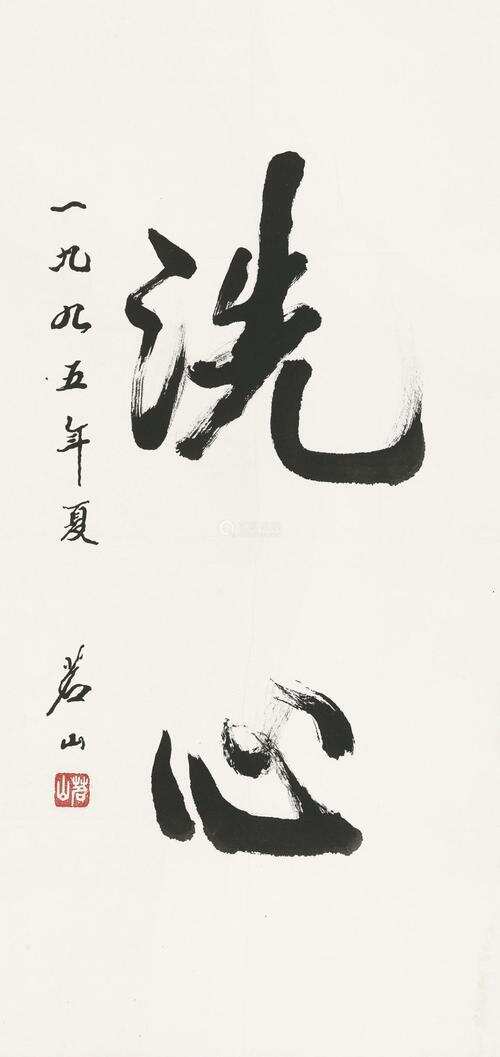 洗心
一九九五年夏
茗山
茗山